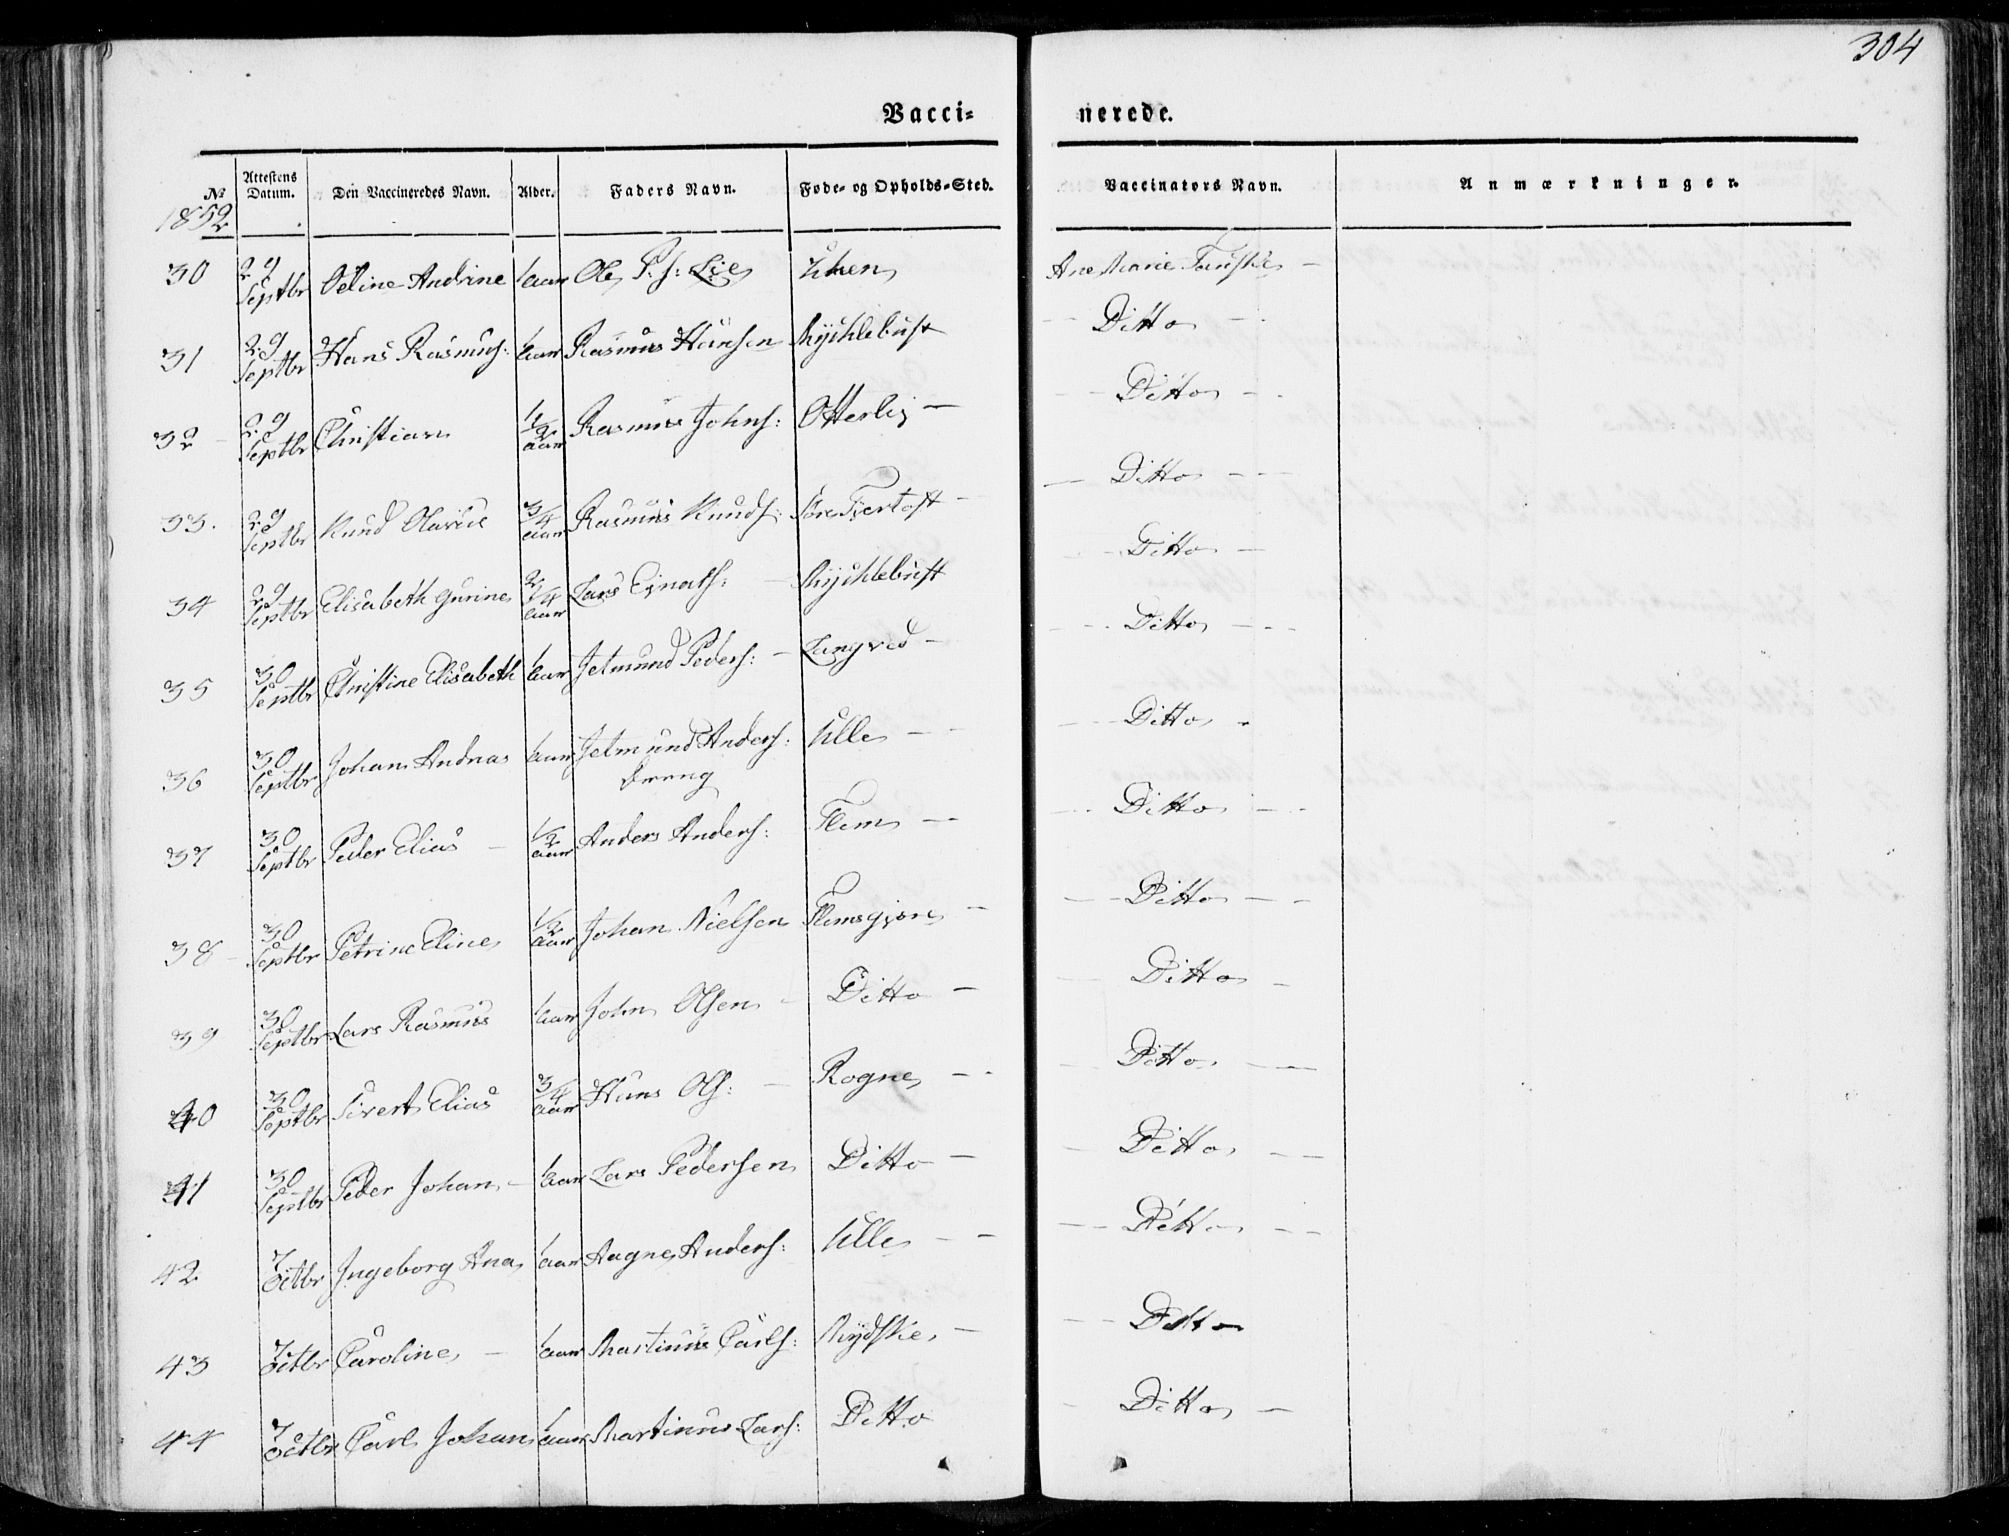 304
Vacci-nerede.
№ Attestens Datum. Den Vaccineredes Navn. Alder. Faders Navn. Føde- og Opholds-Sted. Vaccinators Navn. Anmærkninger.
1852
30 29 Septbr Oeline Andrine 1 aar Ole P. s: Lie Uhen Ane Marie Fanske -
31 29 Septbr Hans Rasmus: 1 aar Rasmus Hansen Myklebust - Ditto -
32 - 29 Septbr Christian 1/2 aar Rasmus Johns: Otterlei - - Ditto -
33. 29 Septbr Knud Olaus 3/4 aar Rasmus Knuds: Søre Fjertoft - - Ditto - -
34 29 Septbr Elisabeth Gurine 2/4 aar Lars Ejnars: - Myklebust - Ditto -
35 30 Septbr Christine Elisabeth 1 aar Jetmund Peders: - Longved - - Ditto - -
36 30 Septbr Johan Andreas 1 aar Jetmund Anders: Ulle - - - Ditto -
Dreng
37 30 Septbr Peder Elias - 1/2 aar Anders Anders: Flem - - Ditto - -
38 - 30 Septbr Petrine Eline 1/2 aar Johan Nielsen Flemsgjere - - Ditto - -
39 30 Septbr Lars Rasmus 1 aar John Olsen - Ditto - - Ditto -
40 30 Septbr Sivert Elias 3/4 aar Hans Ols: - Rogne - - - Ditto -
41 30 Septbr Peder Johan - 1 aar Lars Pedersen Ditto - - Ditto - -
42 7 Octbr Ingeborg Ana 1 aar Aagne Anders: Ulle - - - - Ditto - -
43 7 Octbr Caroline - 1 aar Martinus Carls: Rydske - - - Ditto
44 7 Octbr Carl Johan 1 aar Martinus Lars: Ditto - Ditto -